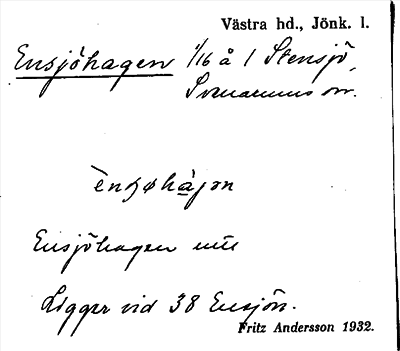 Västra hd., Jönk. l.
Ensjöhagen 1/16 å 1 Stensjö,
Svenarums sn.
ènsøhàjɔn
Ensjöhagen
Ligger vid 38 Ensjön.
Fritz Andersson 1932.